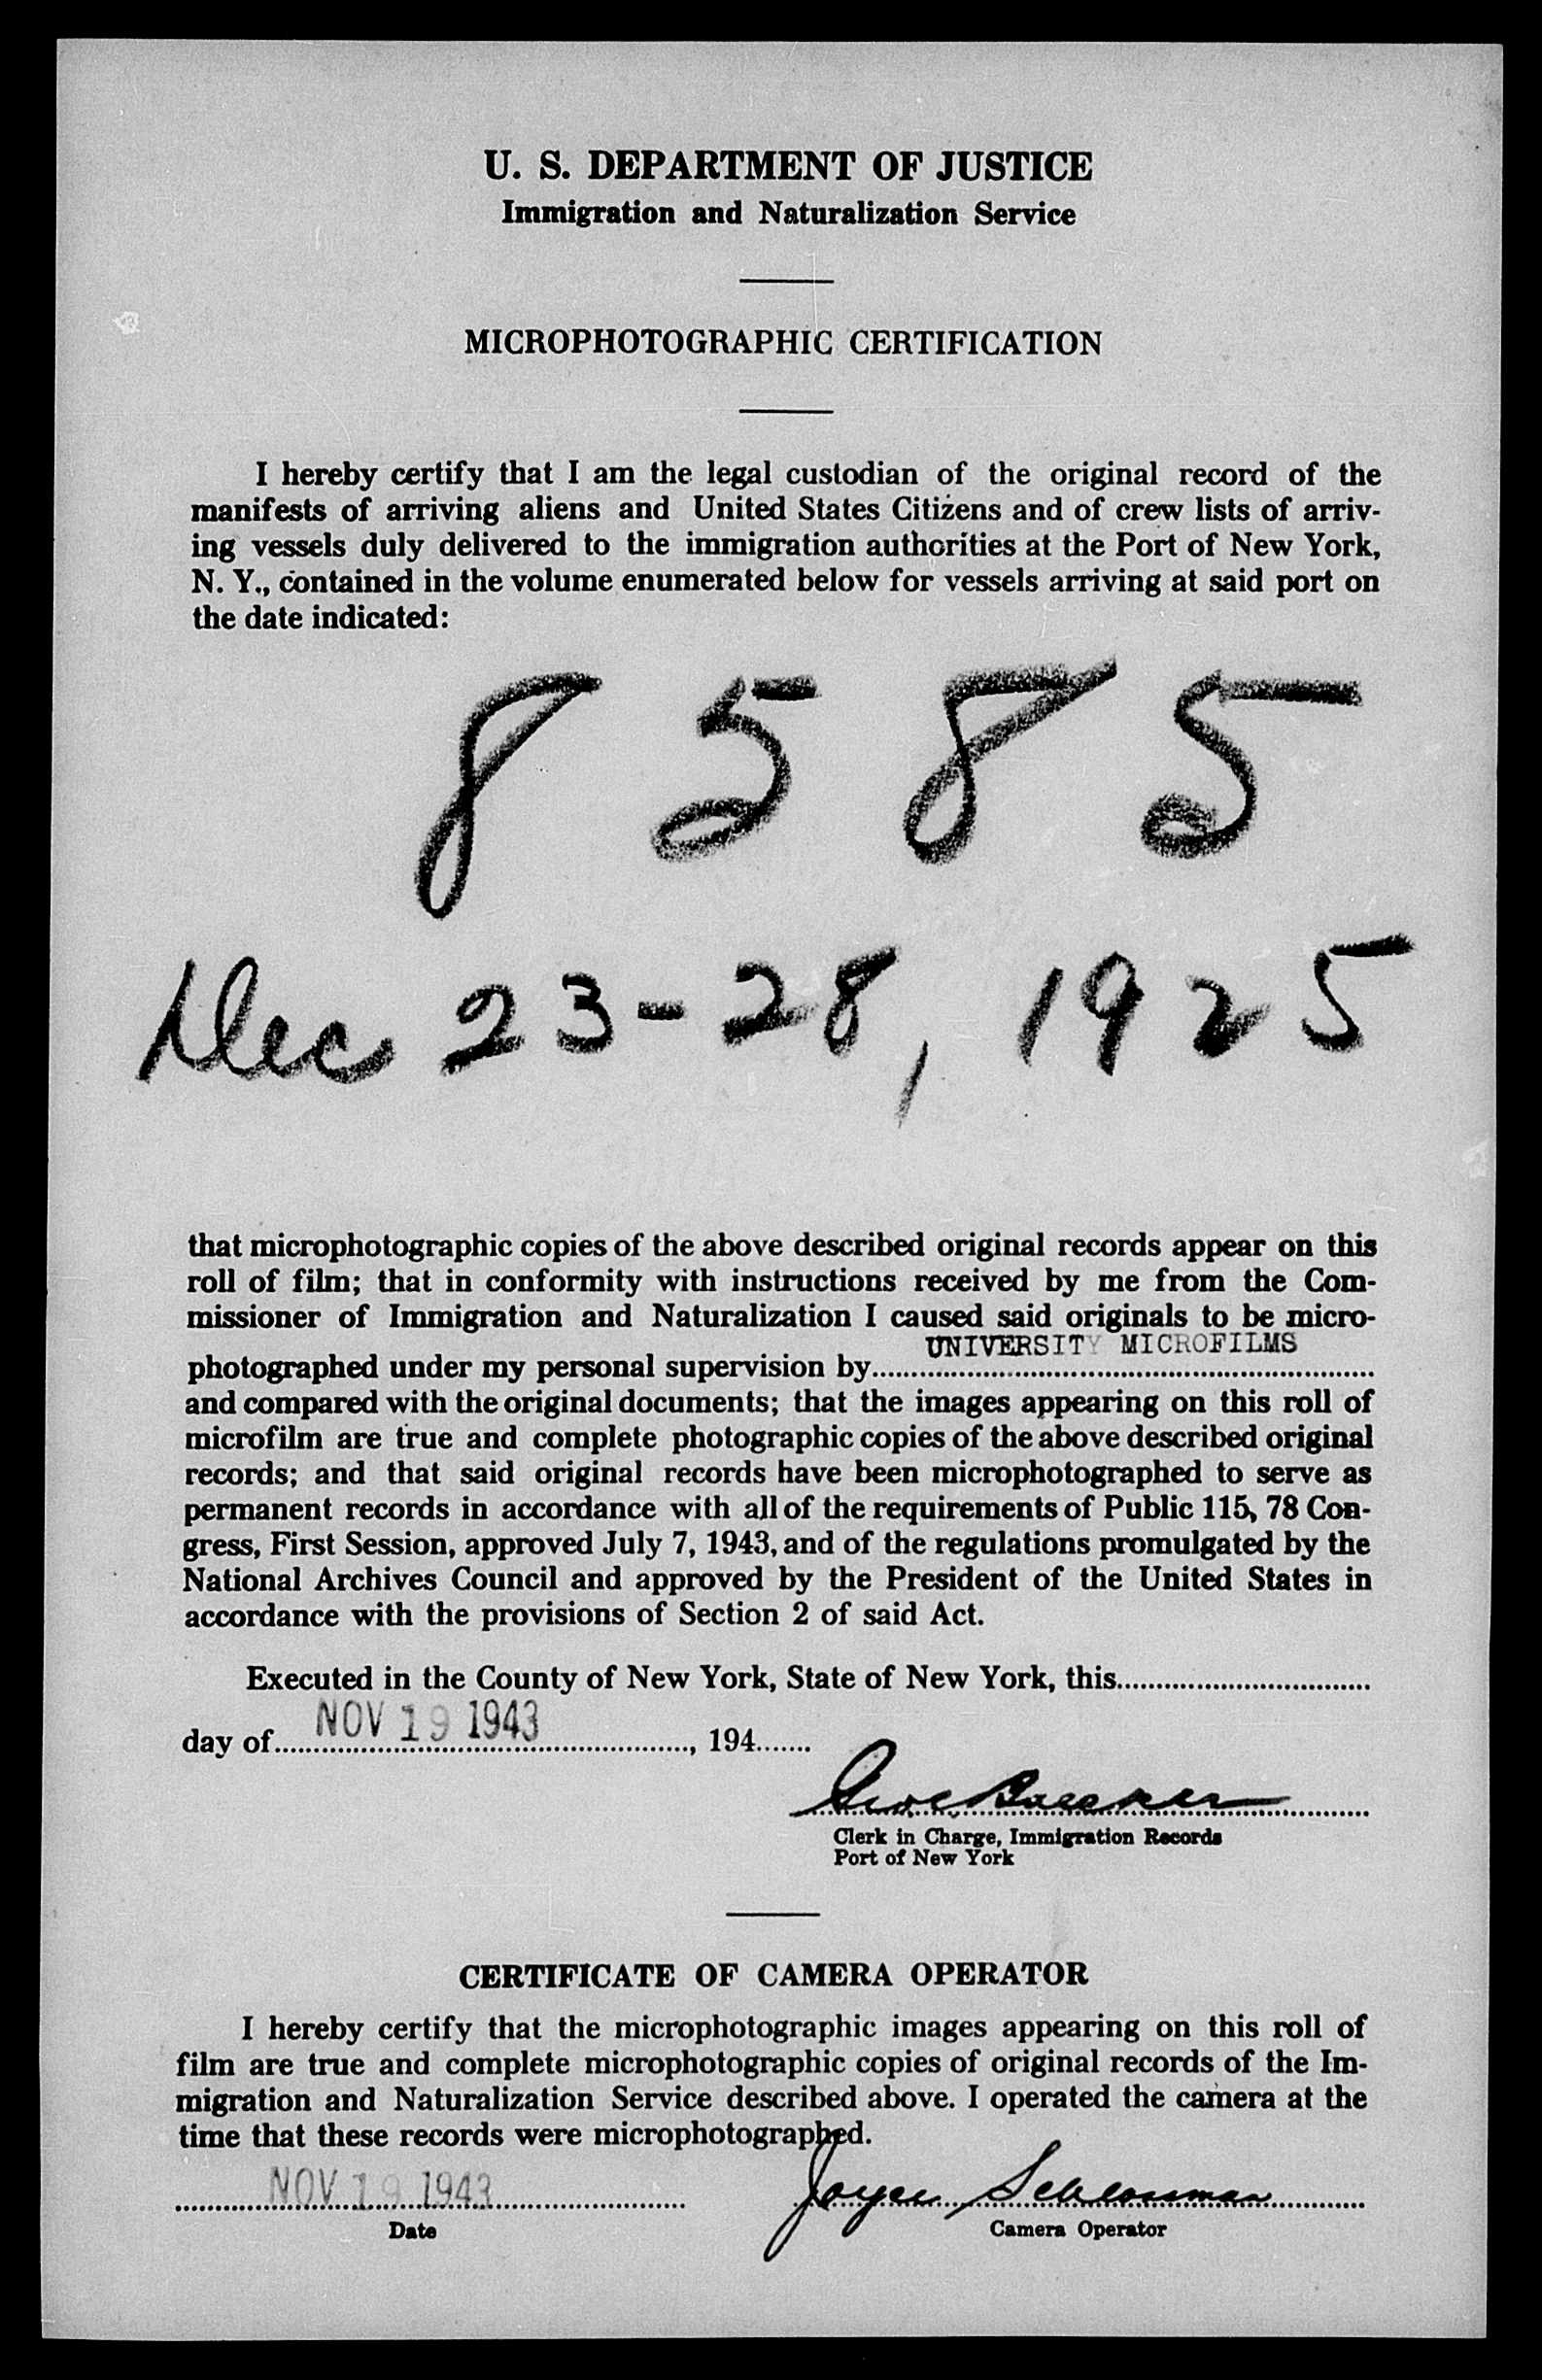 U. S. DEPARTMENT OF JUSTICE
Immigration and Naturalization Service
MICROPHOTOGRAPHIC CERTIFICATION
I hereby certify that I am the legal custodian of the original record of the
manifests of arriving aliens and United States Citizens and of crew lists of arriv-
ing vessels duly delivered to the immigration authorities at the Port of New York,
N. Y., contained in the volume enumerated below for vessels arriving at said port on
the date indicated:
8 5 8 5
Dec 23-28, 1925
that microphotographic copies of the above described original records appear on this
roll of film; that in conformity with instructions received by me from the Com-
missioner of Immigration and Naturalization I caused said originals to be micro-
UNIVERSITY MICROFILMS
photographed under my personal supervision by
and compared with the original documents; that the images appearing on this roll of
microfilm are true and complete photographic copies of the above described original
records; and that said original records have been microphotographed to serve as
permanent records in accordance with all of the requirements of Public 115, 78 Con-
gress, First Session, approved July 7, 1943, and of the regulations promulgated by the
National Archives Council and approved by the President of the United States in
accordance with the provisions of Section 2 of said Act.
Executed in the County of New York, State of New York, this
day of NOV 19 1943, 194
Clerk in Charge, Immigration Records
Port of New York
CERTIFICATE OF CAMERA OPERATOR
I hereby certify that the microphotographic images appearing on this roll of
film are true and complete microphotographic copies of original records of the Im-
migration and Naturalization Service described above. I operated the camera at the
time that these records were microphotographed.
NOV 19 1943 Joyce
Date Camera Operator